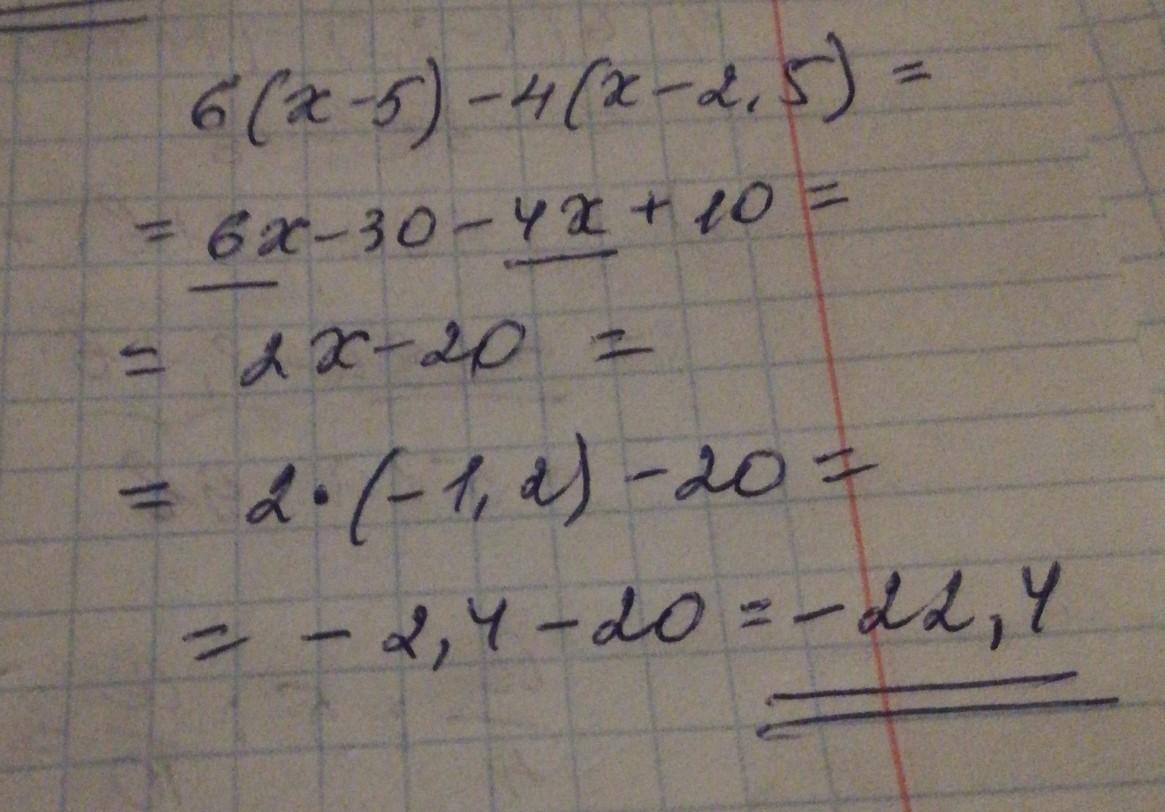 6(x-5)-4(x-2,5)=
=6x-30-4x+10=
=2x-20=
=2·(-1,2)-20=
=-2,4-20=-22,4